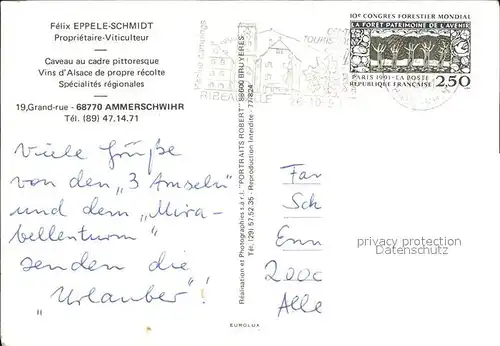 Félix EPPELE-SCHMIDT
Propriétaire-Viticulteur
Caveau au cadre pittoresque
Vins d'Alsace de propre récolte
Spécialités régionales
19, Grand-rue - 68770 AMMERSCHWIHR
Tél. (89) 47.14.71
Viele Grüße
von den "3 Amseln"
und dem "Mira-
bellenturm"
senden die
Urlauber"!
Réalisation et Photographies s.a.r.l. "PORTRAITS ROBERT" 88600 BRUYERES
Tél. (29) 57.52.35 - Reproduction Interdite - 77/224
EUROLUX
10e CONGRES FORESTIER MONDIAL
LA FORÊT PATRIMOINE DE L'AVENIR
PARIS 1991 - LA POSTE
RÉPUBLIQUE FRANÇAISE 2,50
Far
Sch
Enn
2000
Alle
privacy protection
Datenschutz